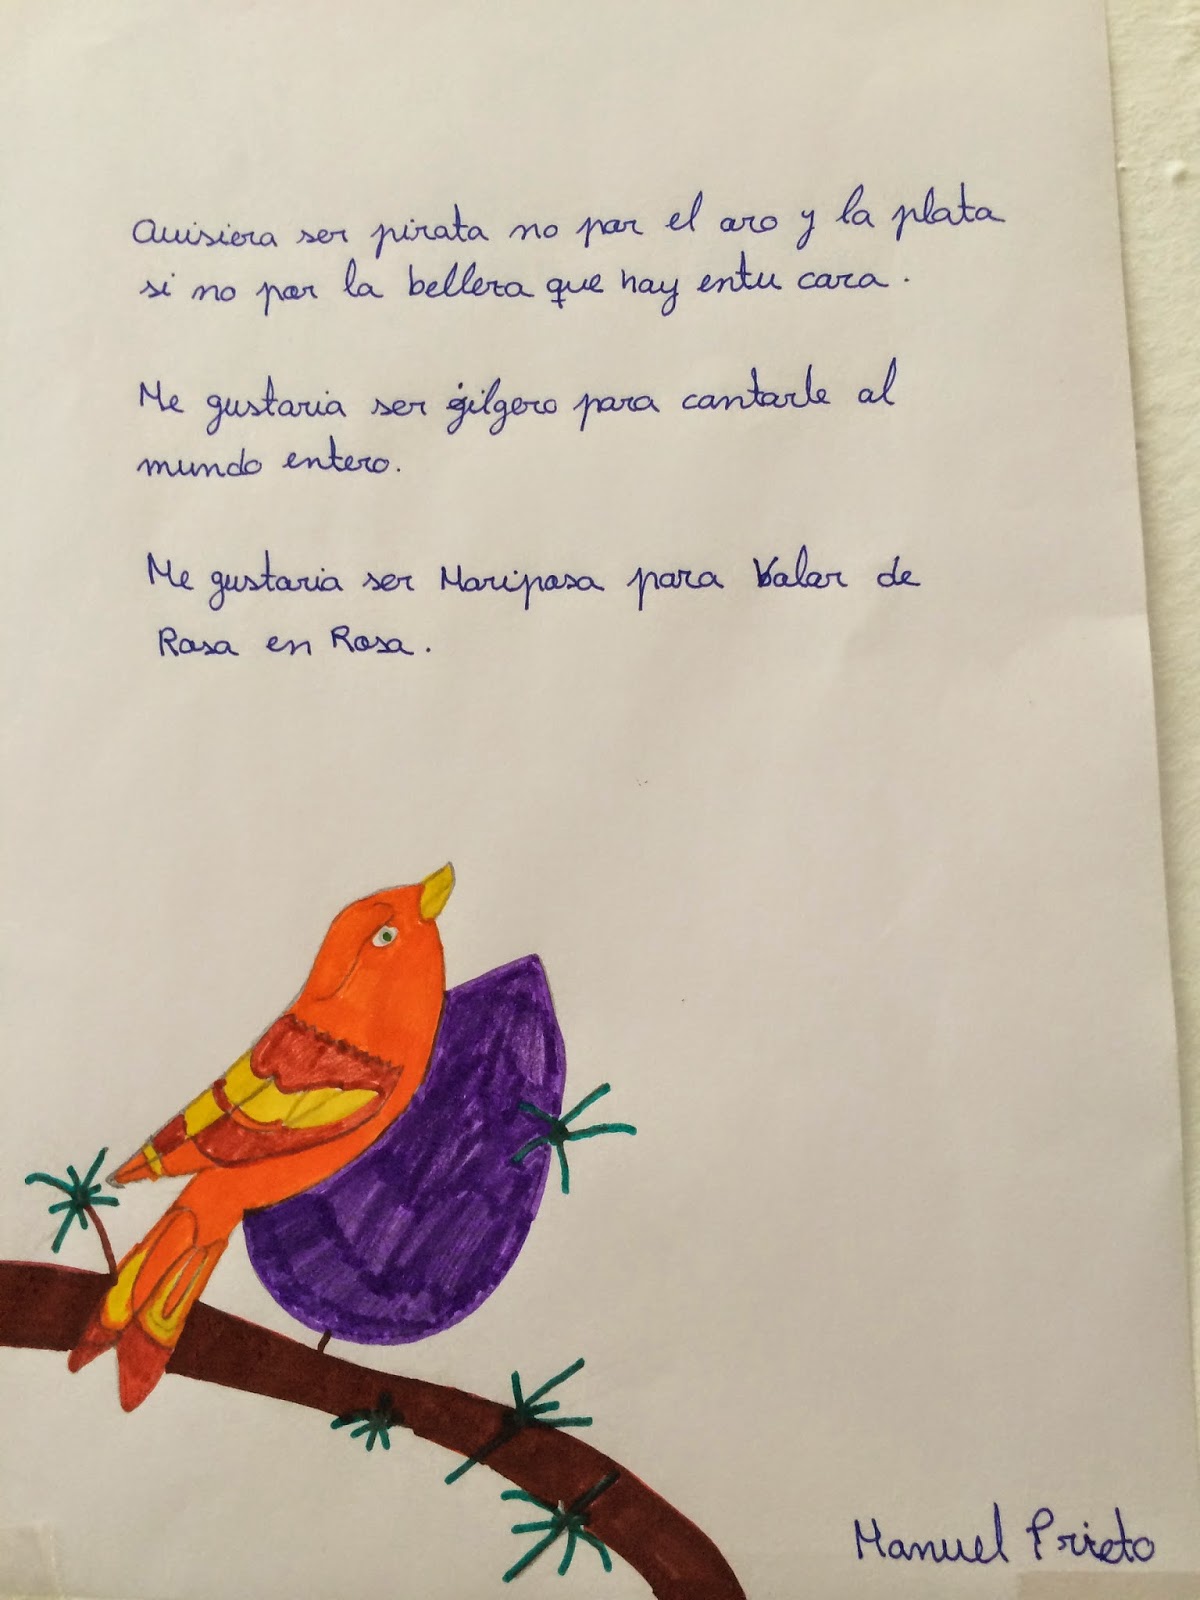 Quisiera ser pirata no por el oro y la plata
si no por la belleza que hay entu cara.
Me gustaria ser gilgero para cantarle al
mundo entero.
Me gustaria ser Mariposa para Volar de
Rosa en Rosa.
Manuel Prieto